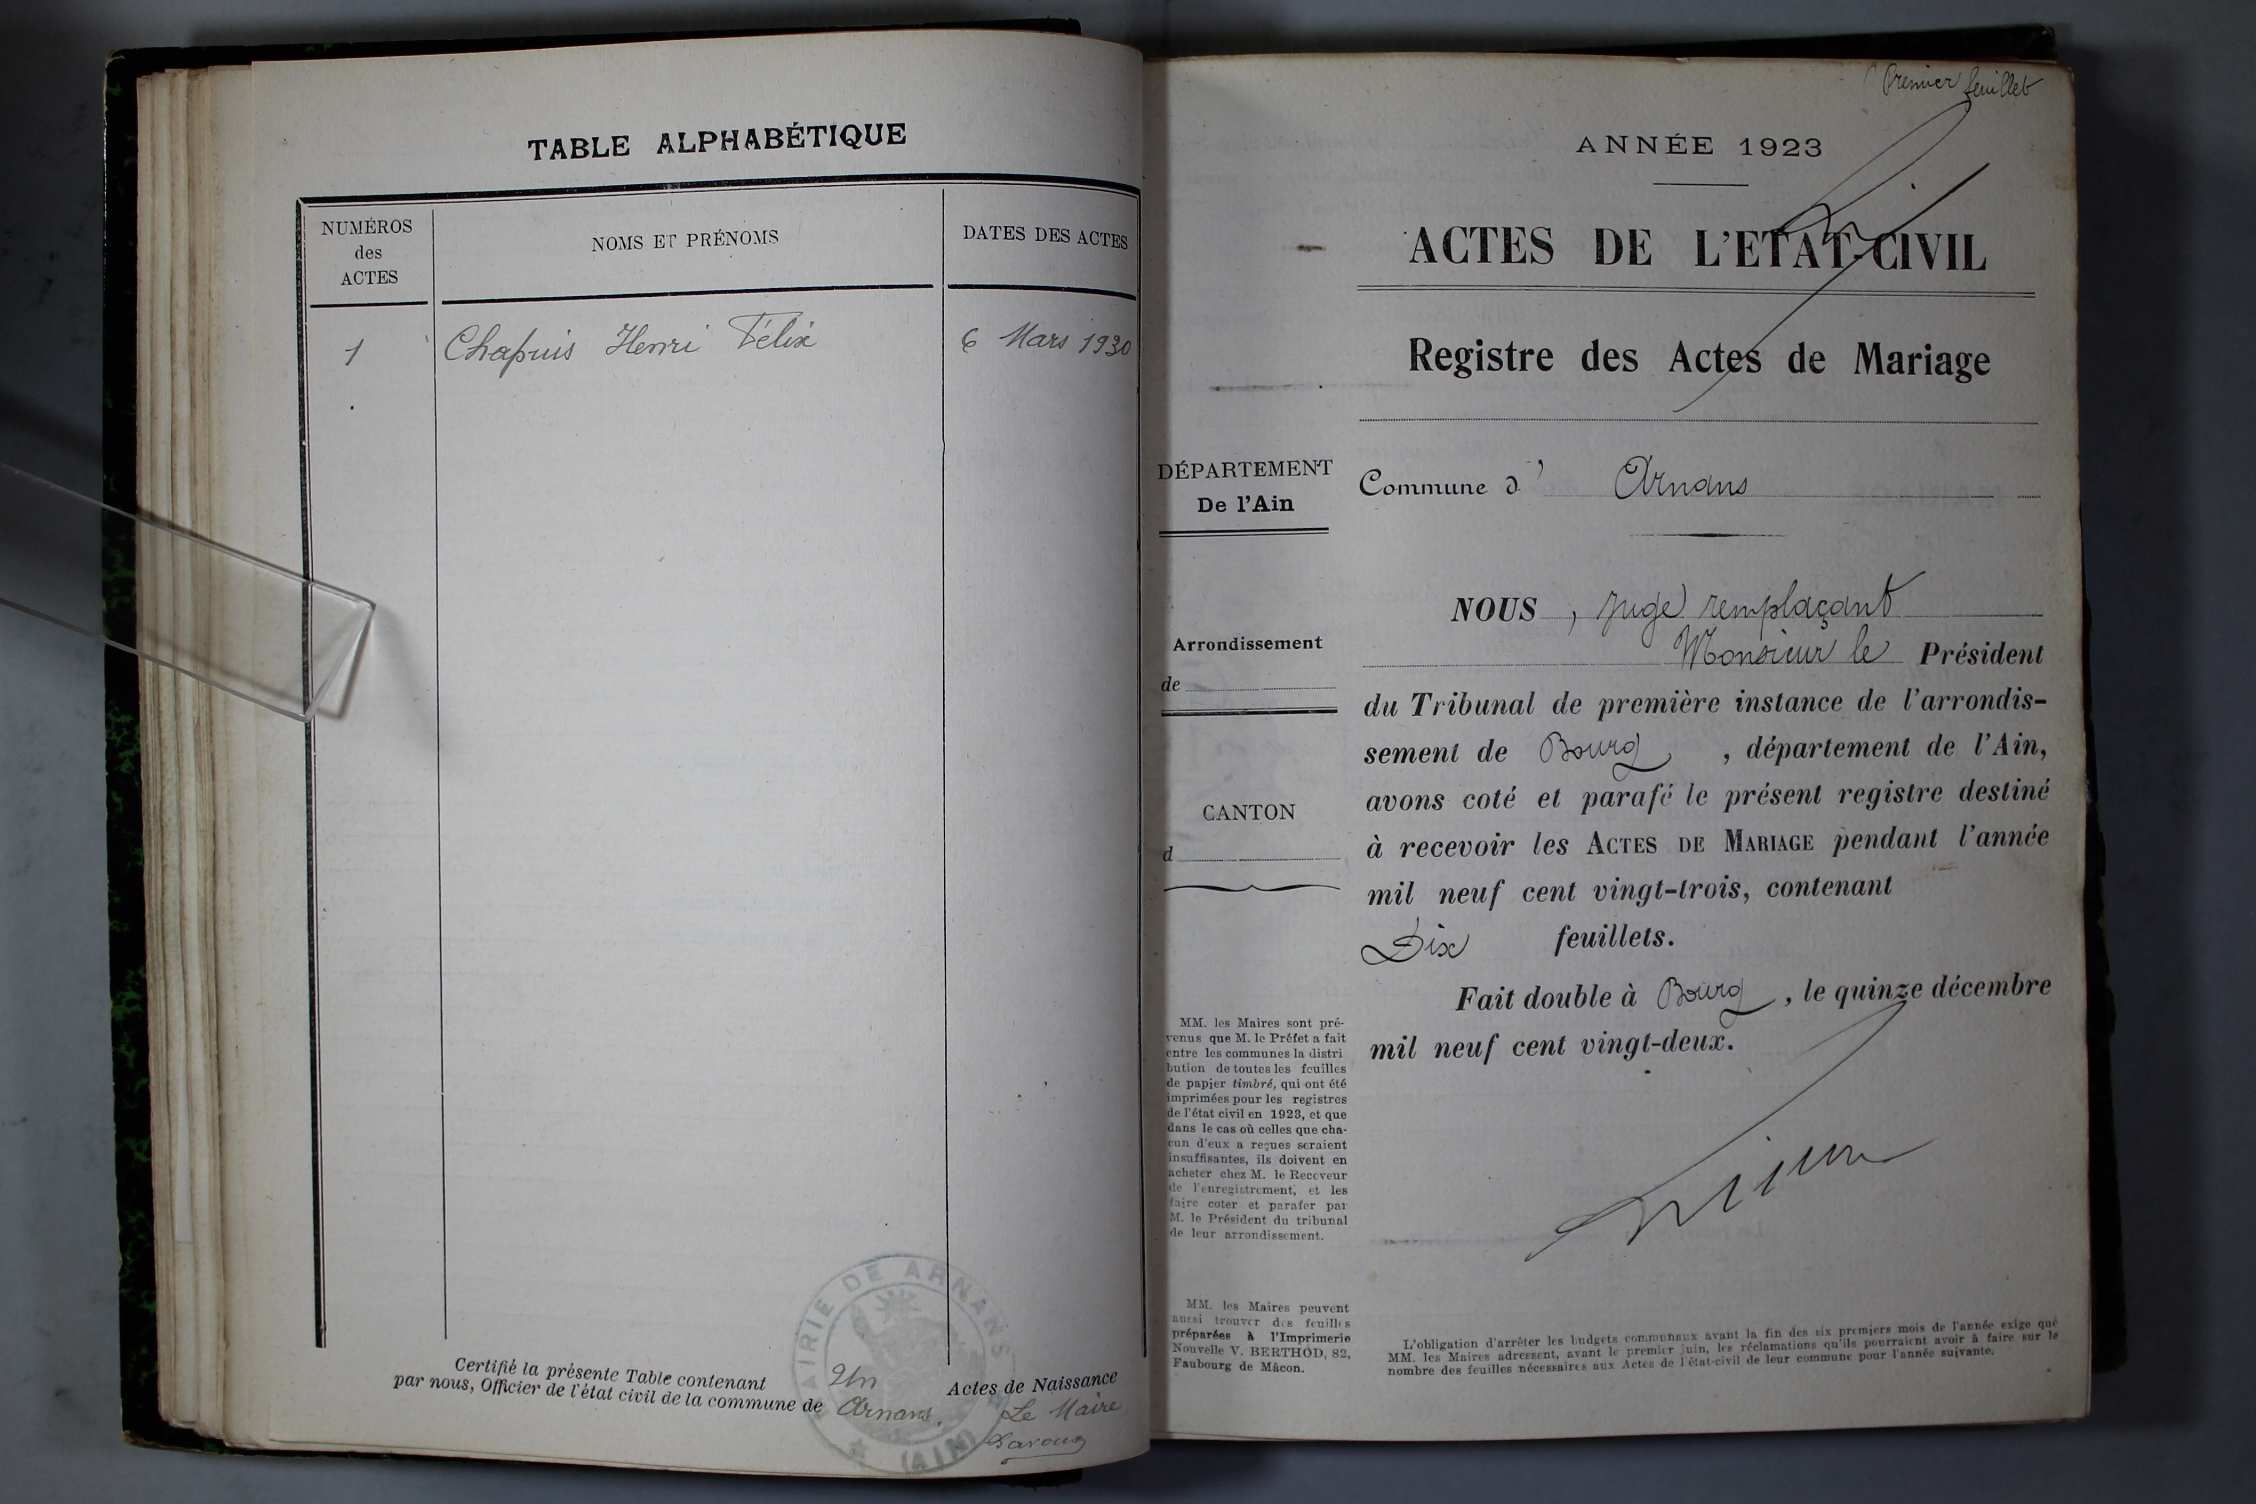 TABLE ALPHABÉTIQUE
NUMÉROS
des
ACTES
NOMS ET PRÉNOMS
DATES DES ACTES
1 Chapuis Henri Félix 6 Mars 1930
Certifié la présente Table contenant Un Actes de Naissance
par nous, Officier de l'état civil de la commune de Arnans. Le Maire
MAIRIE DE ARNANS
(AIN)
Premier feuillet
ANNÉE 1923
ACTES DE L'ETAT-CIVIL
Registre des Actes de Mariage
DÉPARTEMENT
De l'Ain
Arrondissement
de
CANTON
d
MM. les Maires sont pré-
venus que M. le Préfet a fait
entre les communes la distri
bution de toutes les feuilles
de papier timbré, qui ont été
imprimées pour les registres
de l'état civil en 1923, et que
dans le cas où celles que cha-
cun d'eux a reçues seraient
insuffisantes, ils doivent en
acheter chez M. le Receveur
de l'enregistrement, et les
faire coter et parafer par
M. le Président du tribunal
de leur arrondissement.
MM. les Maires peuvent
aussi trouver des feuilles
préparées à l'Imprimerie
Nouvelle V. BERTHOD, 82,
Faubourg de Mâcon.
Commune d' Arnans
NOUS, Juge remplaçant
Monsieur le Président
du Tribunal de première instance de l'arrondis-
sement de Bourg, département de l'Ain,
avons coté et parafé le présent registre destiné
à recevoir les ACTES DE MARIAGE pendant l'année
mil neuf cent vingt-trois, contenant
Dix feuillets.
Fait double à Bourg, le quinze décembre
mil neuf cent vingt-deux.
L'obligation d'arrêter les budgets communaux avant la fin des six premiers mois de l'année exige que
MM. les Maires adressent, avant le premier juin, les réclamations qu'ils pourraient avoir à faire sur le
nombre des feuilles nécessaires aux Actes de l'état-civil de leur commune pour l'année suivante.